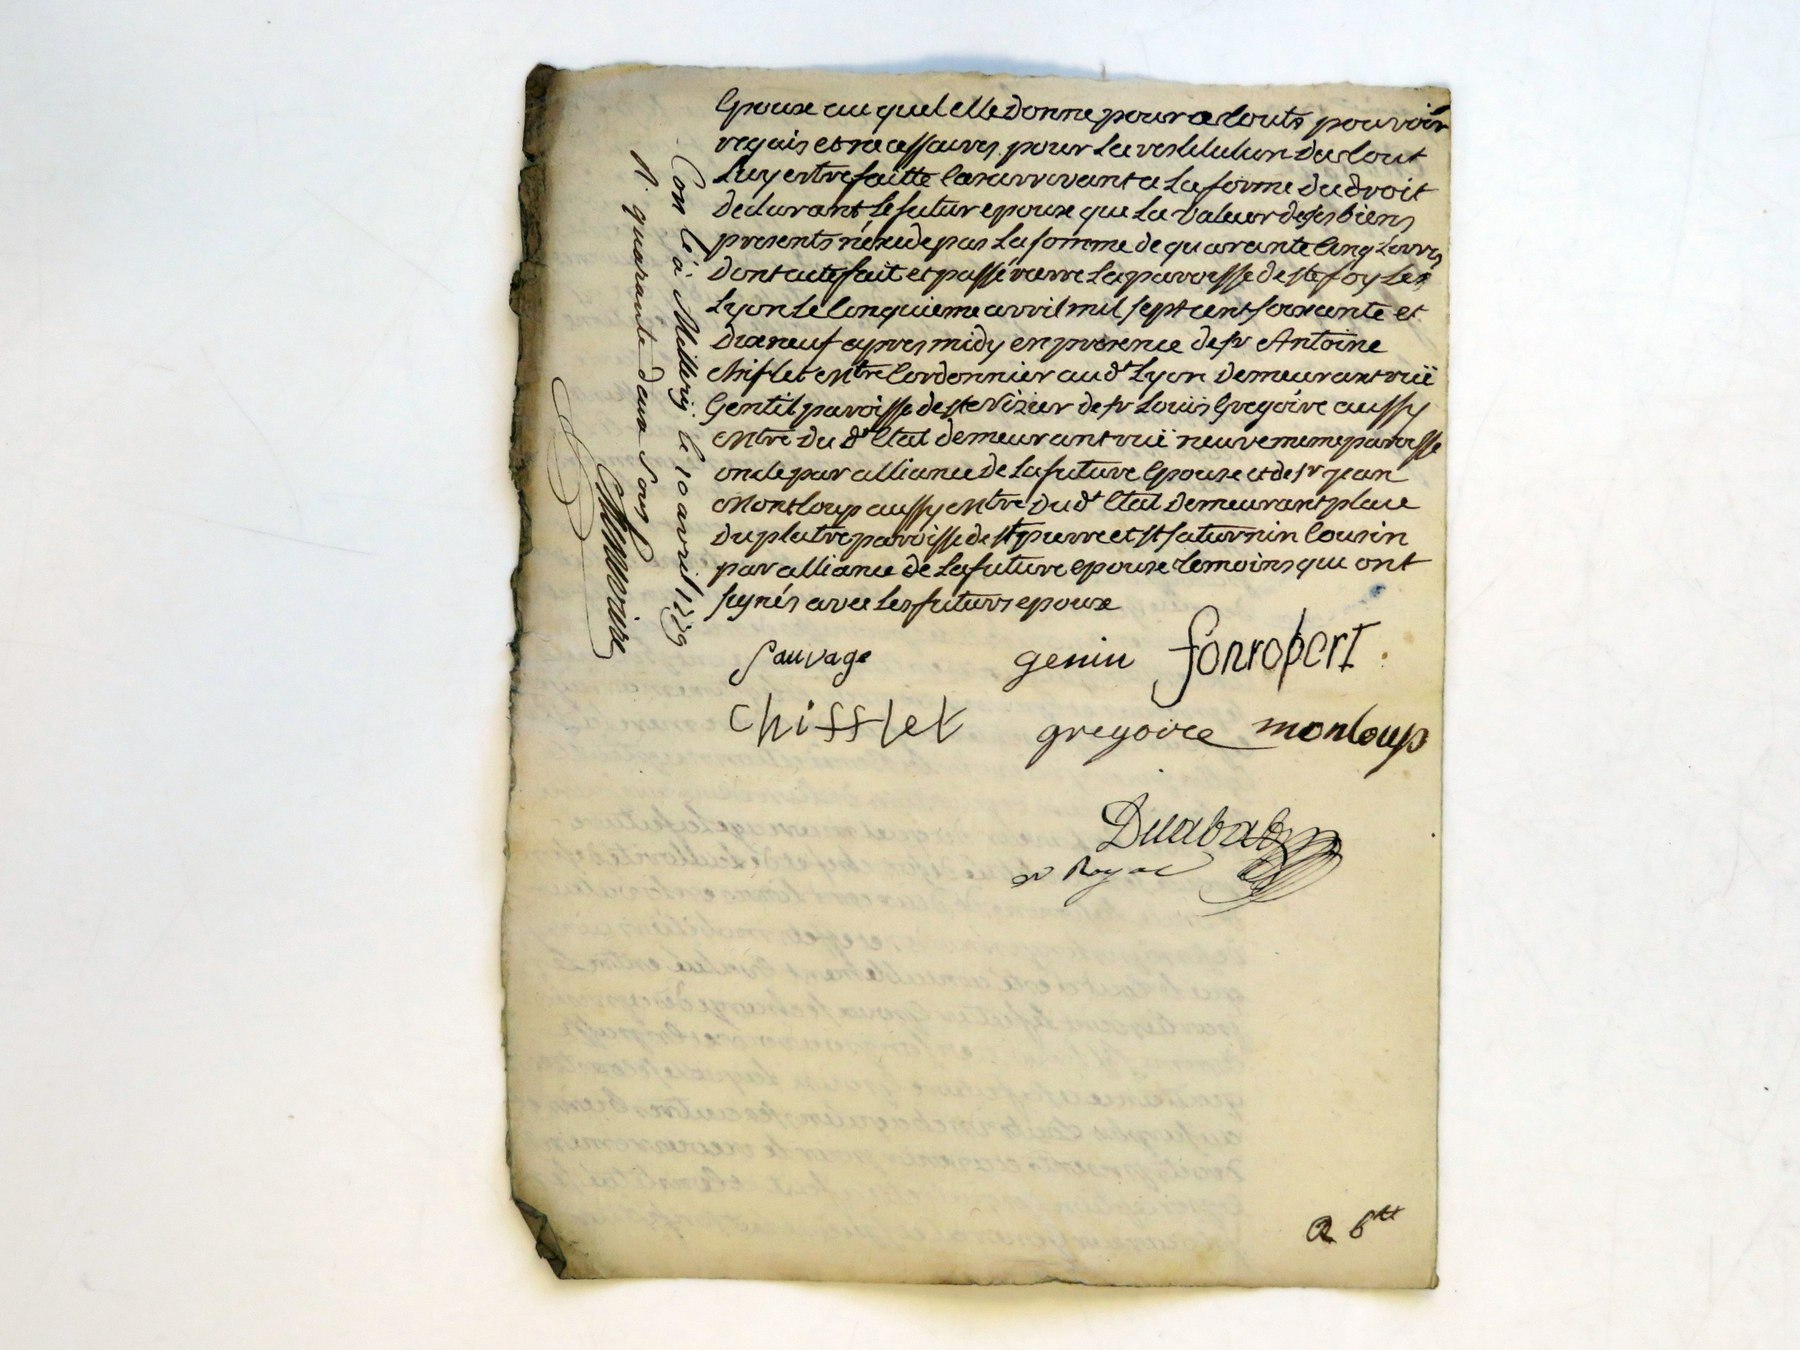 Epoux auquel elle donne pour ce touts pouvoir
requis et necessaires pour la restitution du tout
luy estre faitte le cas arrivant a la forme du droit
declarant le futur epoux que la valeur de ses biens
presents n'éxède pas la somme de quarante cinq livres
dont acte fait et passé vivre la paroisse de ste foy Les
Lyon Le Cinquieme avril mil sept cent soixante et
dixneuf apres midy en presence de sr Antoine
Chiflet Mtre Cordonnier aud. Lyon demeurant ruë
Gentil paroisse de st Nizier de sr Louis Gregoire aussy
Mtre du dt Etat demeurant ruë neuve meme paroisse
oncle par alliance de la future Epouse et de sr jean
Montloup aussy Mtre dudt Etat demeurant place
du platre paroisse de st pierre et st saturnin Cousin
par alliance de la future epouse temoins qui ont
signés avec les futurs epoux
Sauvage genin fonropert
Chifflet gregoire monloup
nre Royal
a 6tt
Con lé à Millery le 10 avril 1779
R. quarante deux sous